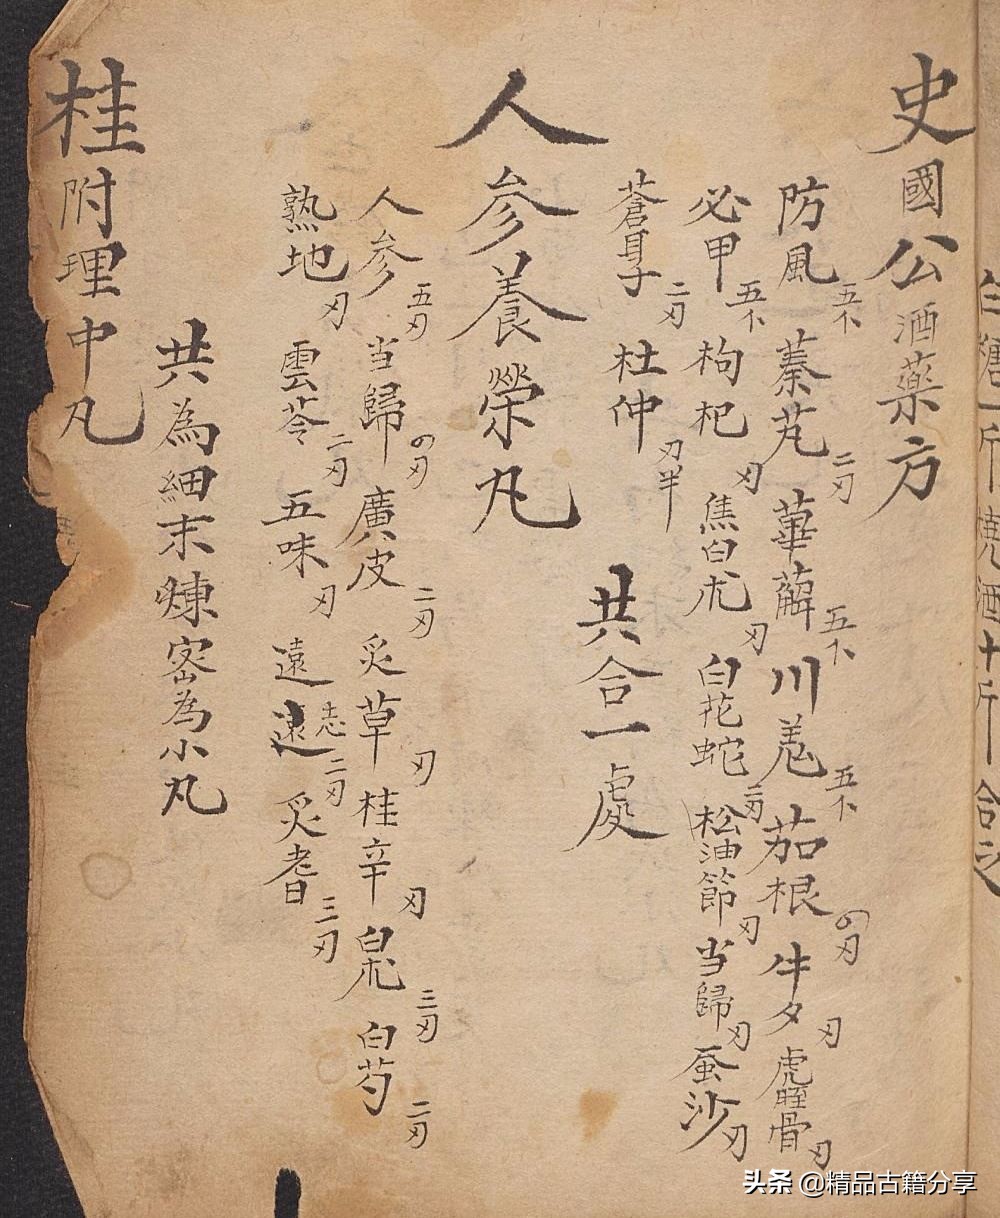 白糖一斤燒酒十斤合之
史國公酒藥方
防風五卜 蓁艽二刃 萆薢五卜 川羌五卜 茄根四刃 牛夕刃 虎脛骨刃
必甲五卜 枸杞刃 焦白朮刃 白花蛇二刃 松油節刃 当歸刃 蚕沙刃
蒼耳子二刃 杜仲刃半
共合一處
人參養榮丸
人參五刃 当歸四刃 廣皮二刃 炙草刃 桂辛刃 白朮三刃 白芍二刃
熟地刃 雲苓二刃 五味刃 遠志二刃 炙耆三刃
共為細末煉宻為小丸
桂附理中丸
头条 @精品古籍分享